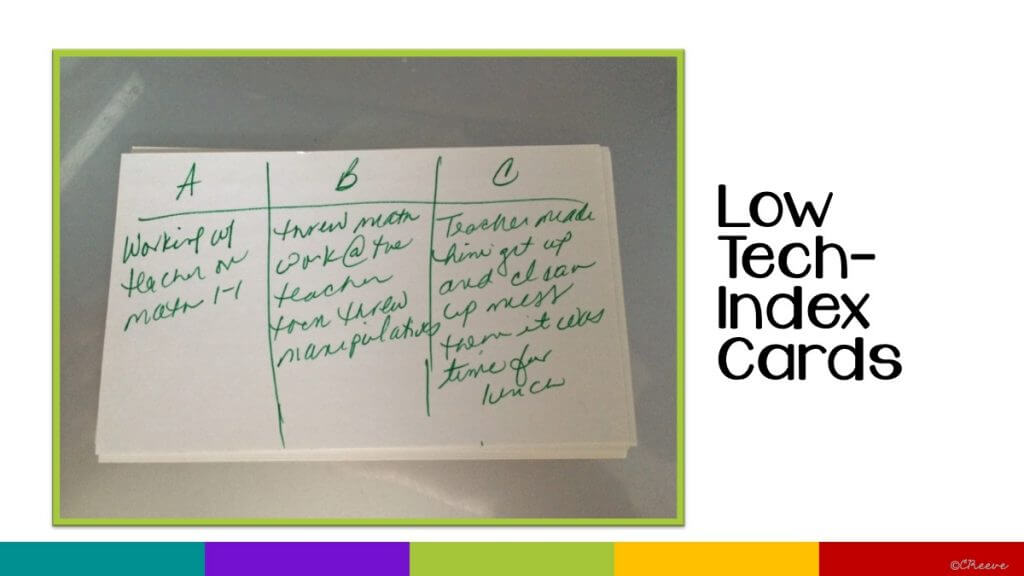 A
Working w/
teacher on
math 1-1
B
threw math
work @ the
teacher
then threw
manipulatives
C
Teacher made
him get up
and clean
up mess
then it was
time for
lunch
Low
Tech-
Index
Cards
©CReeve